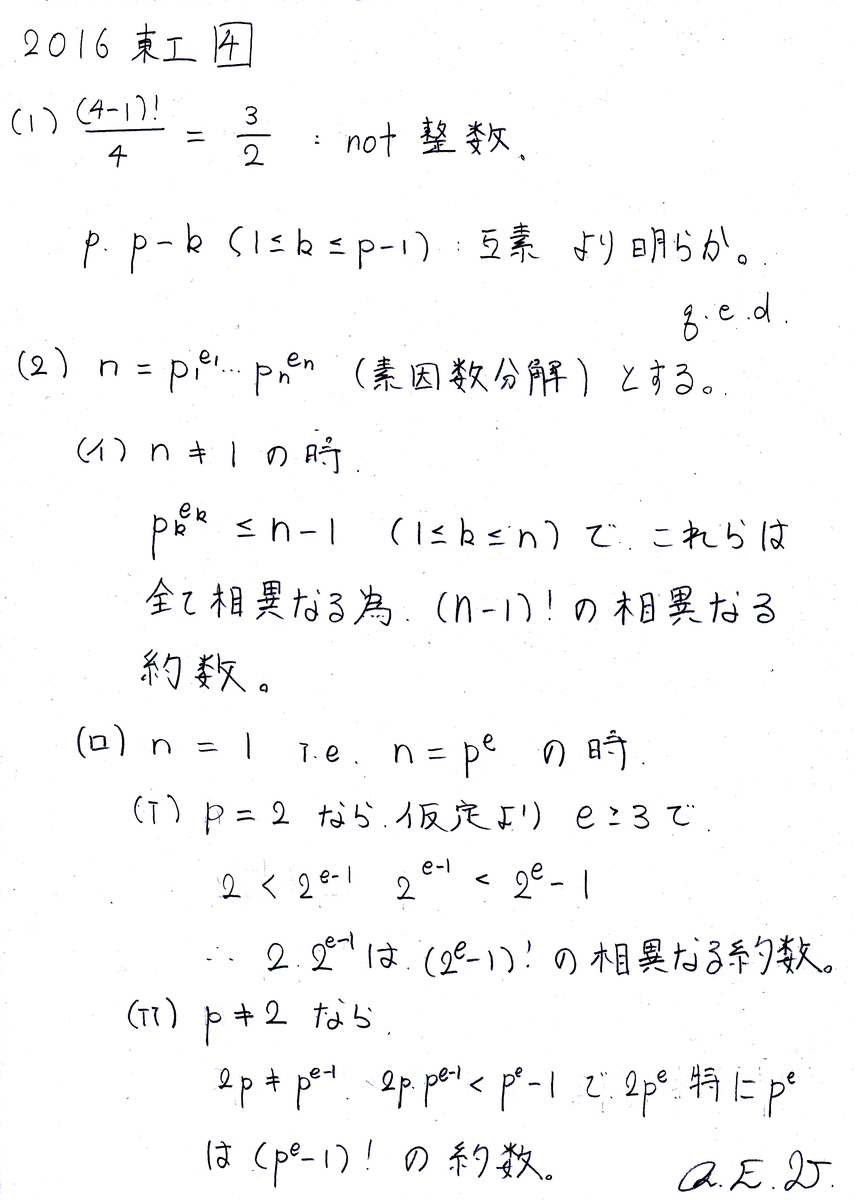 2016 東工 4
(1) (4-1)!/4 = 3/2 : not 整数、
p, p-k (1≤k≤p-1) : 互素 より明らか。
q.e.d.
(2) n = p₁^e₁ … pₙ^eₙ (素因数分解) とする。
(イ) n ≠ 1 の時、
pₖ^eₖ ≤ n-1 (1≤k≤n) で、これらは
全て相異なる為、(n-1)! の相異なる
約数。
(ロ) n = 1 i.e. n = p^e の時、
(i) p = 2 なら、仮定より e≥3 で、
2 < 2^(e-1), 2^(e-1) < 2^e - 1
∴ 2, 2^(e-1) は、(2^e-1)! の相異なる約数。
(ii) p ≠ 2 なら、
2p ≠ p^(e-1), 2p, p^(e-1) < p^e - 1 で、2p^e, 特に p^e
は (p^e-1)! の約数。
Q.E.D.